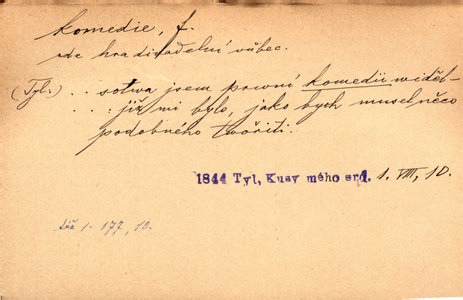 komedie, f.
zde hra divadelní vůbec.
(Tyl.) . . sotva jsem první komedii viděl –
. . . již mi bylo, jako bych musel něco
podobného tvořiti.
1844 Tyl, Kusy mého srd. 1. VIII, 10.
též 1. 177, 10.